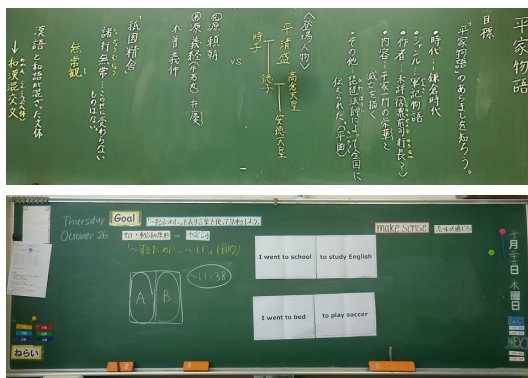 平家物語
目標
「平家物語」のあらましを知ろう。
・時代…鎌倉時代
・ジャンル…軍記物語
・作者…未詳(信濃前司行長?)
・内容…平家一門の栄華と
滅亡を描く
・その他…琵琶法師によって全国に
伝えられた(平曲)
〈登場人物〉
平清盛
時子
徳子
高倉天皇
安徳天皇
vs
源頼朝
源義経
弁慶
木曽義仲
「祇園精舎」
諸行無常…この世に変わらない
ものはない
無常観
漢語と和語が混ざった文体
→和漢混交文
Thursday
October 26
Goal
to + 動詞の原形 =
「~するために、~した」(目的)
A B
~11:38
I went to school to study English
I went to bed to play soccer
make sense 意味が通じる
十月二十六日木曜日
ねらい